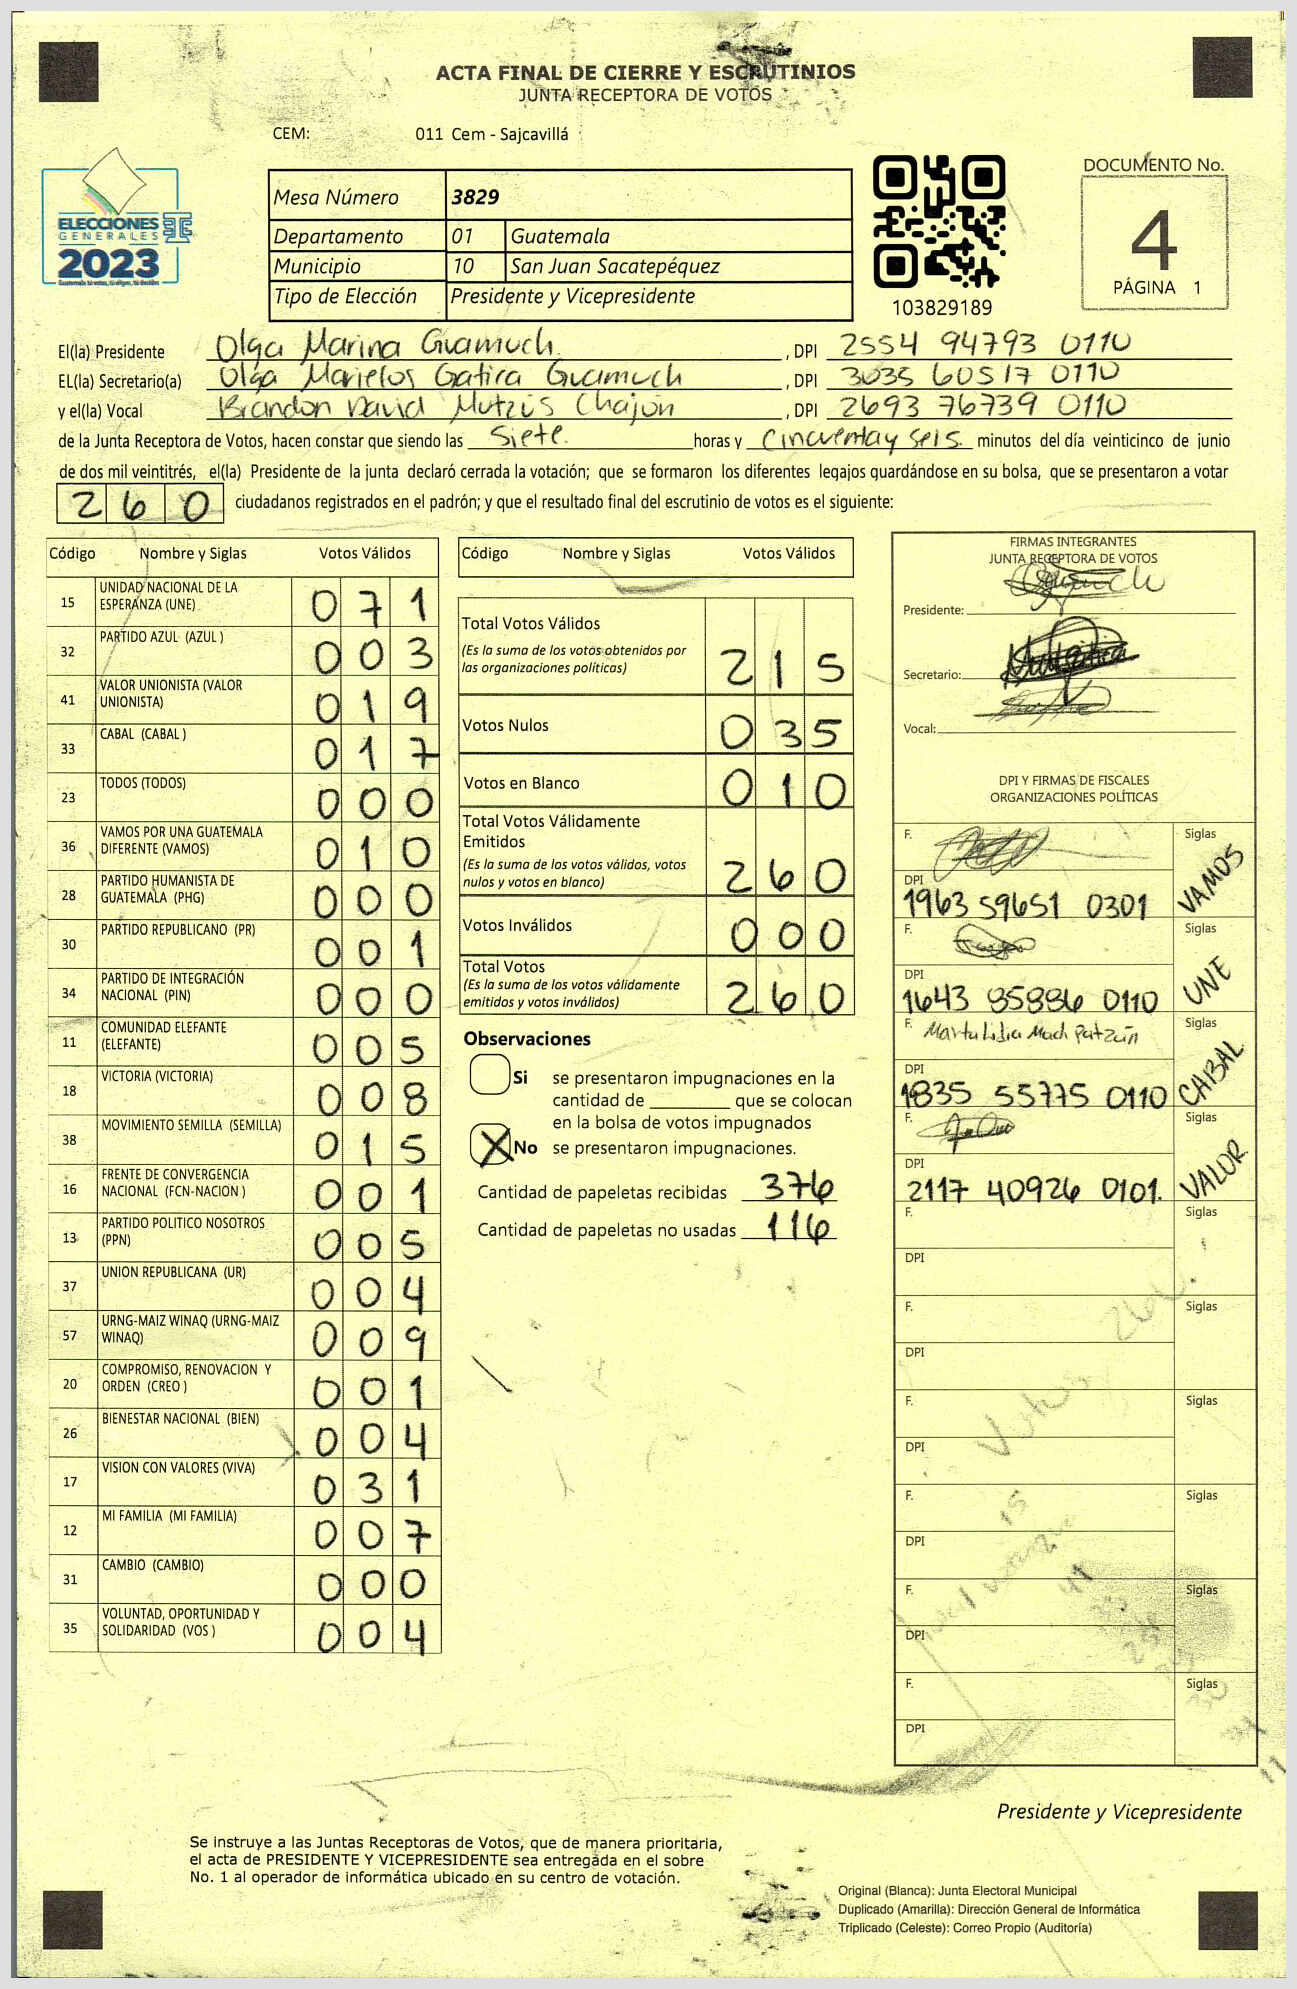 ACTA FINAL DE CIERRE Y ESCRUTINIOS
JUNTA RECEPTORA DE VOTOS
CEM: 011 Cem - Sajcavillá
ELECCIONES
GENERALES
2023
Mesa Número 3829
Departamento 01 Guatemala
Municipio 10 San Juan Sacatepéquez
Tipo de Elección Presidente y Vicepresidente
103829189
DOCUMENTO No.
4
PÁGINA 1
El(la) Presidente Olga Marina Guamuch. , DPI 2554 94793 0110
EL(la) Secretario(a) Olga Marielos Gatica Guamuch , DPI 3035 60517 0110
y el(la) Vocal Brandon David Mutzús Chajón , DPI 2693 76739 0110
de la Junta Receptora de Votos, hacen constar que siendo las Siete. horas y Cincuentay seis. minutos del día veinticinco de junio
de dos mil veintitrés, el(la) Presidente de la junta declaró cerrada la votación; que se formaron los diferentes legajos guardándose en su bolsa, que se presentaron a votar
260 ciudadanos registrados en el padrón; y que el resultado final del escrutinio de votos es el siguiente:
Código Nombre y Siglas Votos Válidos
15 UNIDAD NACIONAL DE LA ESPERANZA (UNE) 071
32 PARTIDO AZUL (AZUL ) 003
41 VALOR UNIONISTA (VALOR UNIONISTA) 019
33 CABAL (CABAL ) 017
23 TODOS (TODOS) 000
36 VAMOS POR UNA GUATEMALA DIFERENTE (VAMOS) 010
28 PARTIDO HUMANISTA DE GUATEMALA (PHG) 000
30 PARTIDO REPUBLICANO (PR) 001
34 PARTIDO DE INTEGRACIÓN NACIONAL (PIN) 000
11 COMUNIDAD ELEFANTE (ELEFANTE) 005
18 VICTORIA (VICTORIA) 008
38 MOVIMIENTO SEMILLA (SEMILLA) 015
16 FRENTE DE CONVERGENCIA NACIONAL (FCN-NACION ) 001
13 PARTIDO POLITICO NOSOTROS (PPN) 005
37 UNION REPUBLICANA (UR) 004
57 URNG-MAIZ WINAQ (URNG-MAIZ WINAQ) 009
20 COMPROMISO, RENOVACION Y ORDEN (CREO ) 001
26 BIENESTAR NACIONAL (BIEN) 004
17 VISION CON VALORES (VIVA) 031
12 MI FAMILIA (MI FAMILIA) 007
31 CAMBIO (CAMBIO) 000
35 VOLUNTAD, OPORTUNIDAD Y SOLIDARIDAD (VOS ) 004
Código Nombre y Siglas Votos Válidos
Total Votos Válidos
(Es la suma de los votos obtenidos por
las organizaciones políticas) 215
Votos Nulos 035
Votos en Blanco 010
Total Votos Válidamente
Emitidos
(Es la suma de los votos válidos, votos
nulos y votos en blanco) 260
Votos Inválidos 000
Total Votos
(Es la suma de los votos válidamente
emitidos y votos inválidos) 260
Observaciones
Si se presentaron impugnaciones en la
cantidad de ________ que se colocan
en la bolsa de votos impugnados
X No se presentaron impugnaciones.
Cantidad de papeletas recibidas 376
Cantidad de papeletas no usadas 116
FIRMAS INTEGRANTES
JUNTA RECEPTORA DE VOTOS
Presidente:
Secretario:
Vocal:
DPI Y FIRMAS DE FISCALES
ORGANIZACIONES POLÍTICAS
F. Siglas
DPI VAMOS
1963 59651 0301
F. Siglas
DPI UNE
1643 85886 0110
F. Marta Lidia Siglas
DPI CABAL
1835 55775 0110
F. Siglas
DPI VALOR
2117 40926 0101.
F. Siglas
DPI
F. Siglas
DPI
F. Siglas
DPI
F. Siglas
DPI
F. Siglas
DPI
F. Siglas
DPI
Presidente y Vicepresidente
Se instruye a las Juntas Receptoras de Votos, que de manera prioritaria,
el acta de PRESIDENTE Y VICEPRESIDENTE sea entregada en el sobre
No. 1 al operador de informática ubicado en su centro de votación.
Original (Blanca): Junta Electoral Municipal
Duplicado (Amarilla): Dirección General de Informática
Triplicado (Celeste): Correo Propio (Auditoría)